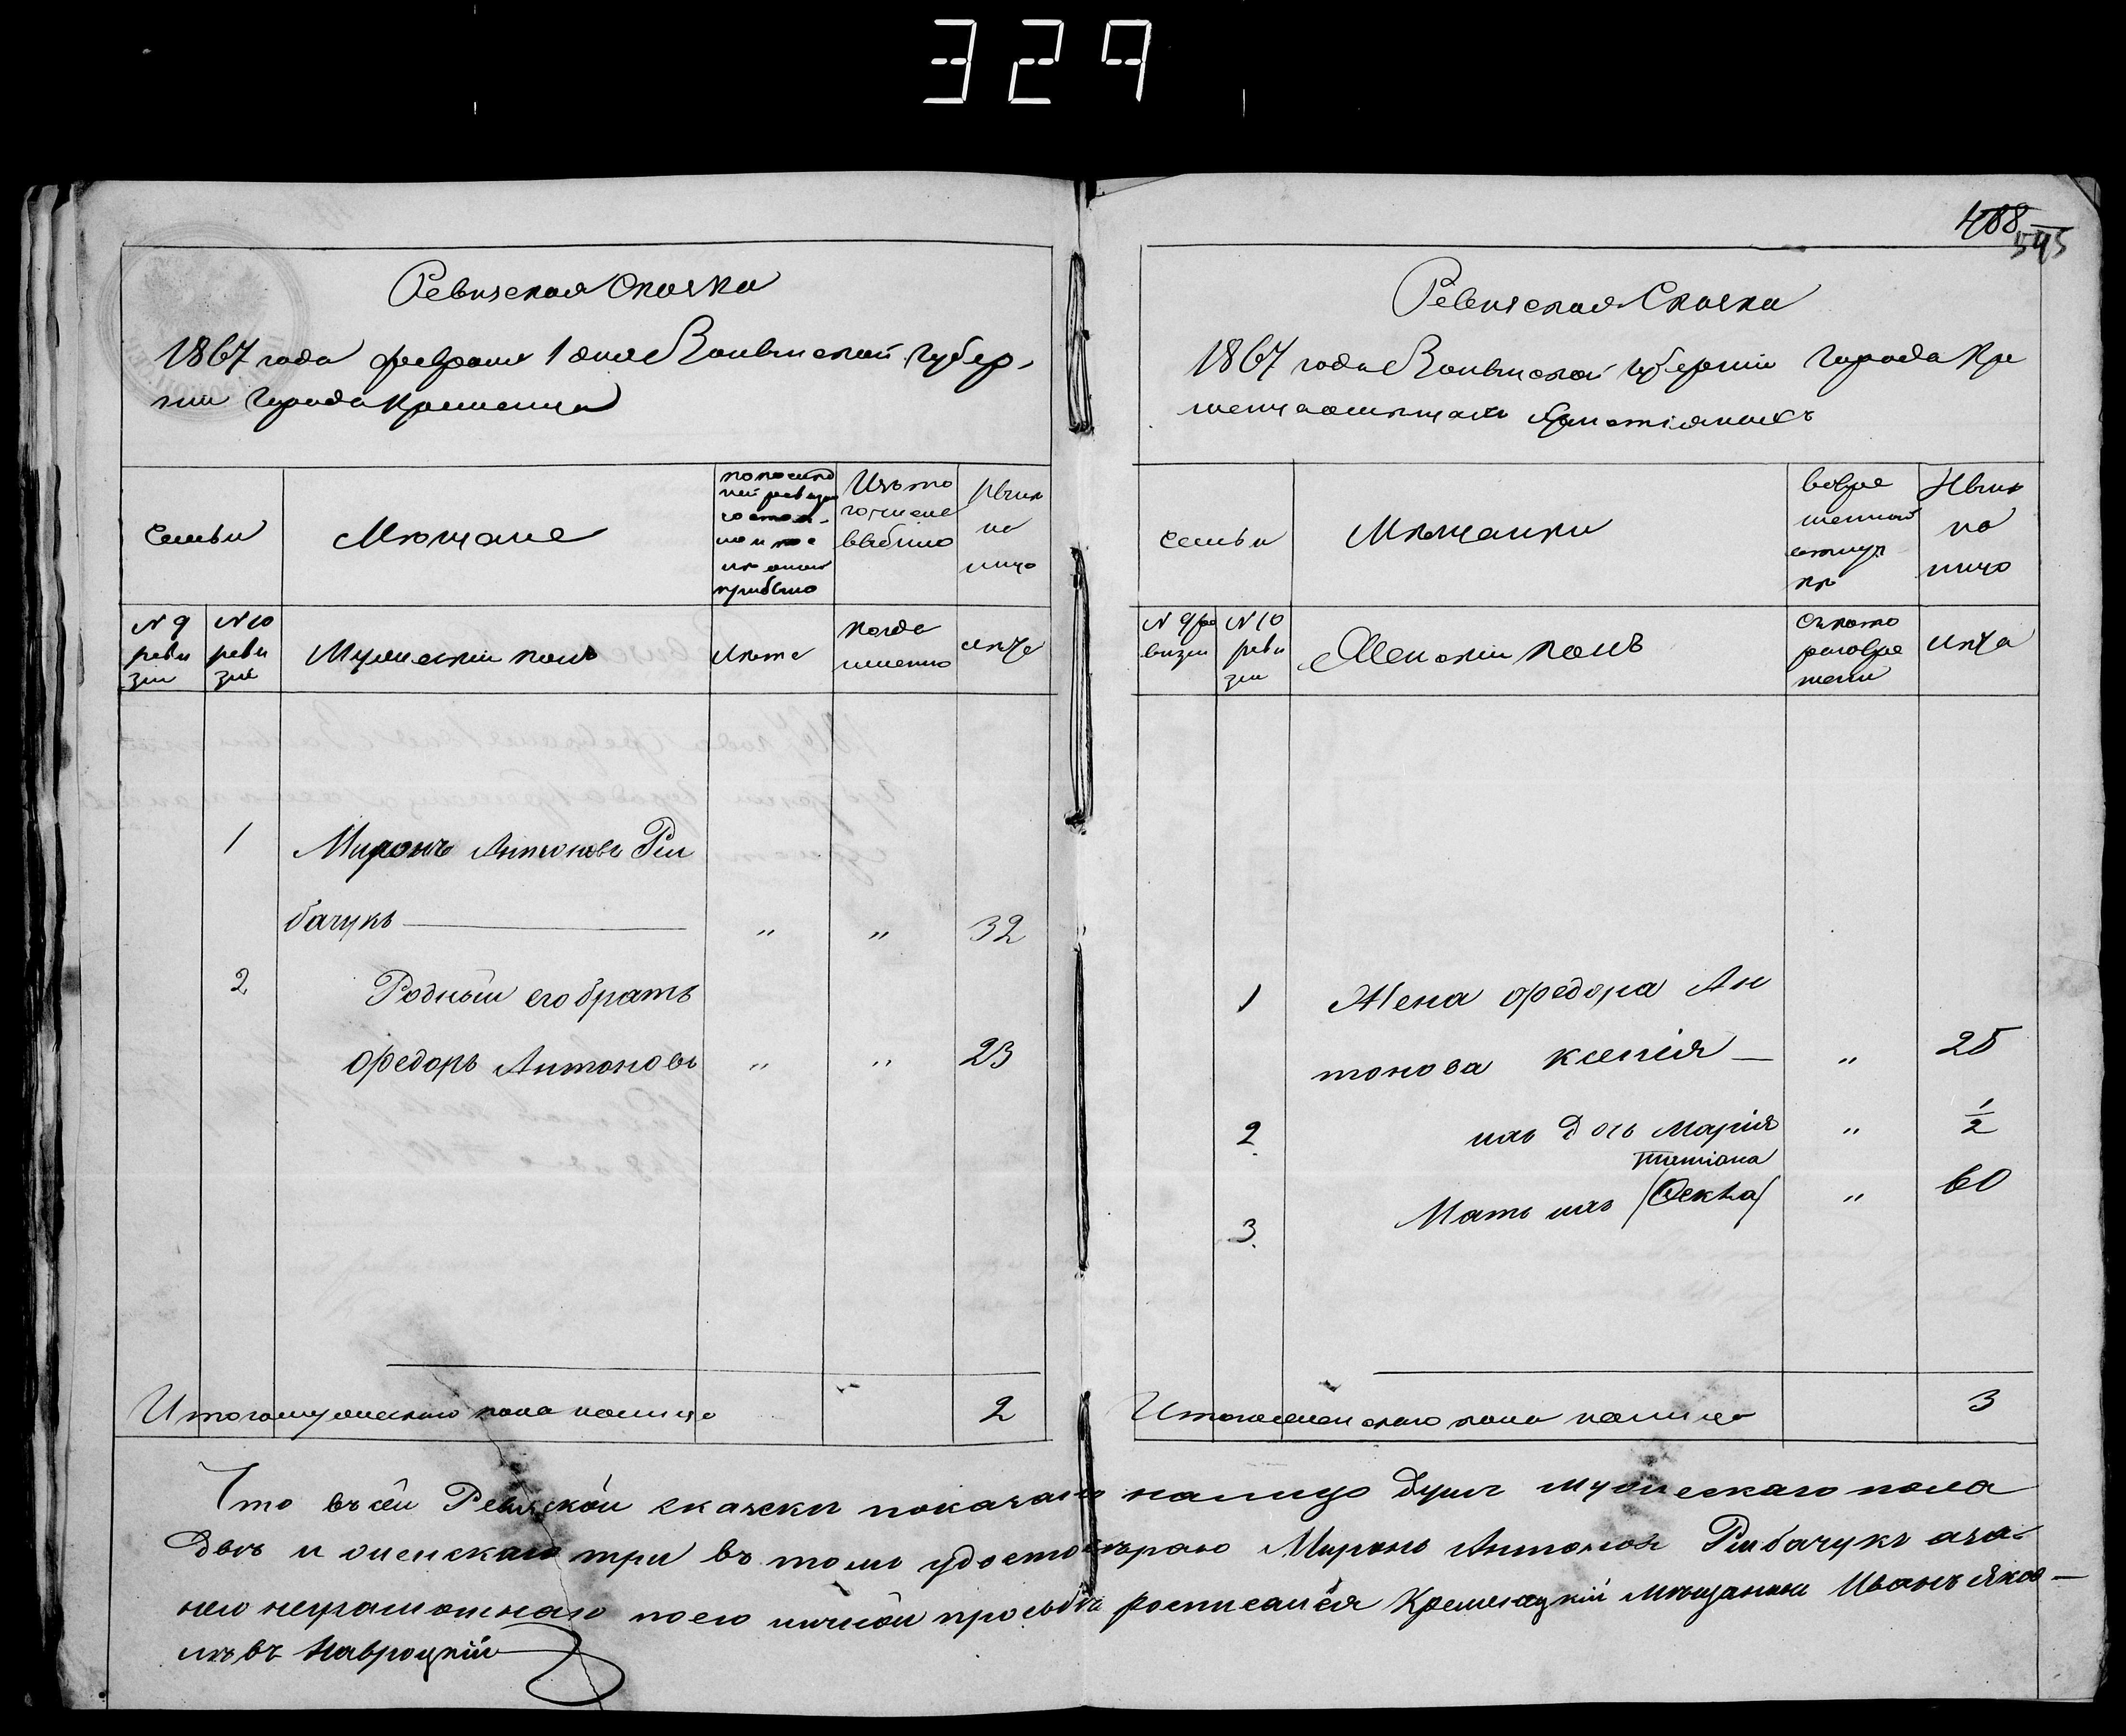 329
488
545
Ревизская Сказка
1867 года февраля 1 дня Волынской Губер
нии Города Кременца
Семьи
Мѣщане
по послед
ней ревизіи
состоя
ло и пос
лѣ оной
прибыло
Изъ то
го числа
выбыло
Нынѣ
на
лицо
N 9
реви
зіи
N 10
реви
зіи
Мужескій полъ
Лѣта
когда
именно
лѣта
1
Миронъ Антоновъ Ри
бачукъ
"
"
32
2
Родный его братъ
Федоръ Антоновъ
"
"
23
Итого мужескаго пола налицо
2
Ревизская Сказка
1867 года Волынской Губерніи Города Кре
менца о мѣщанахъ Христіянахъ
Семьи
Мѣщанки
во вре
менной
отлуч
кѣ
Нынѣ
на
лицо
N 9 ре
визіи
N 10
реви
зіи
Женскій полъ
Съ кото
раго вре
мени
лѣта
1
Жена Федора Ан
тонова Ксенія
"
25
2
ихъ дочь Марія
"
1/2
Татіана
3
Мать ихъ /Фекла/
"
60
Итого женскаго пола налицо
3
Что въ сей Ревизской сказки показано налицо душъ мужескаго пола
двѣ и женскаго три въ томъ удостовѣраю Миронъ Антоновъ Рибачукъ а за
него неграмотнаго по его личной прозьбѣ росписался Кременецкій мѣщанин Иванъ Яков
лѣвъ Навроцкій